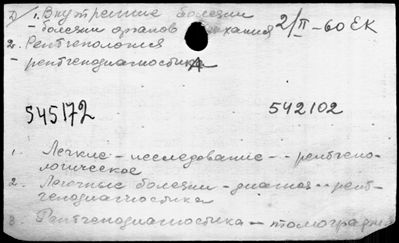 D/ 1. Внутренние болезни
- болезни органов дыхания 2/II-60 ЕК
2. Рентгенология
- рентгенодиагностика
545172 542102
1. Легкие - исследование - - рентгено-
логическое
2. Легочные болезни - диагноз - - рент-
генодиагностика
3. Рентгенодиагностика - томография